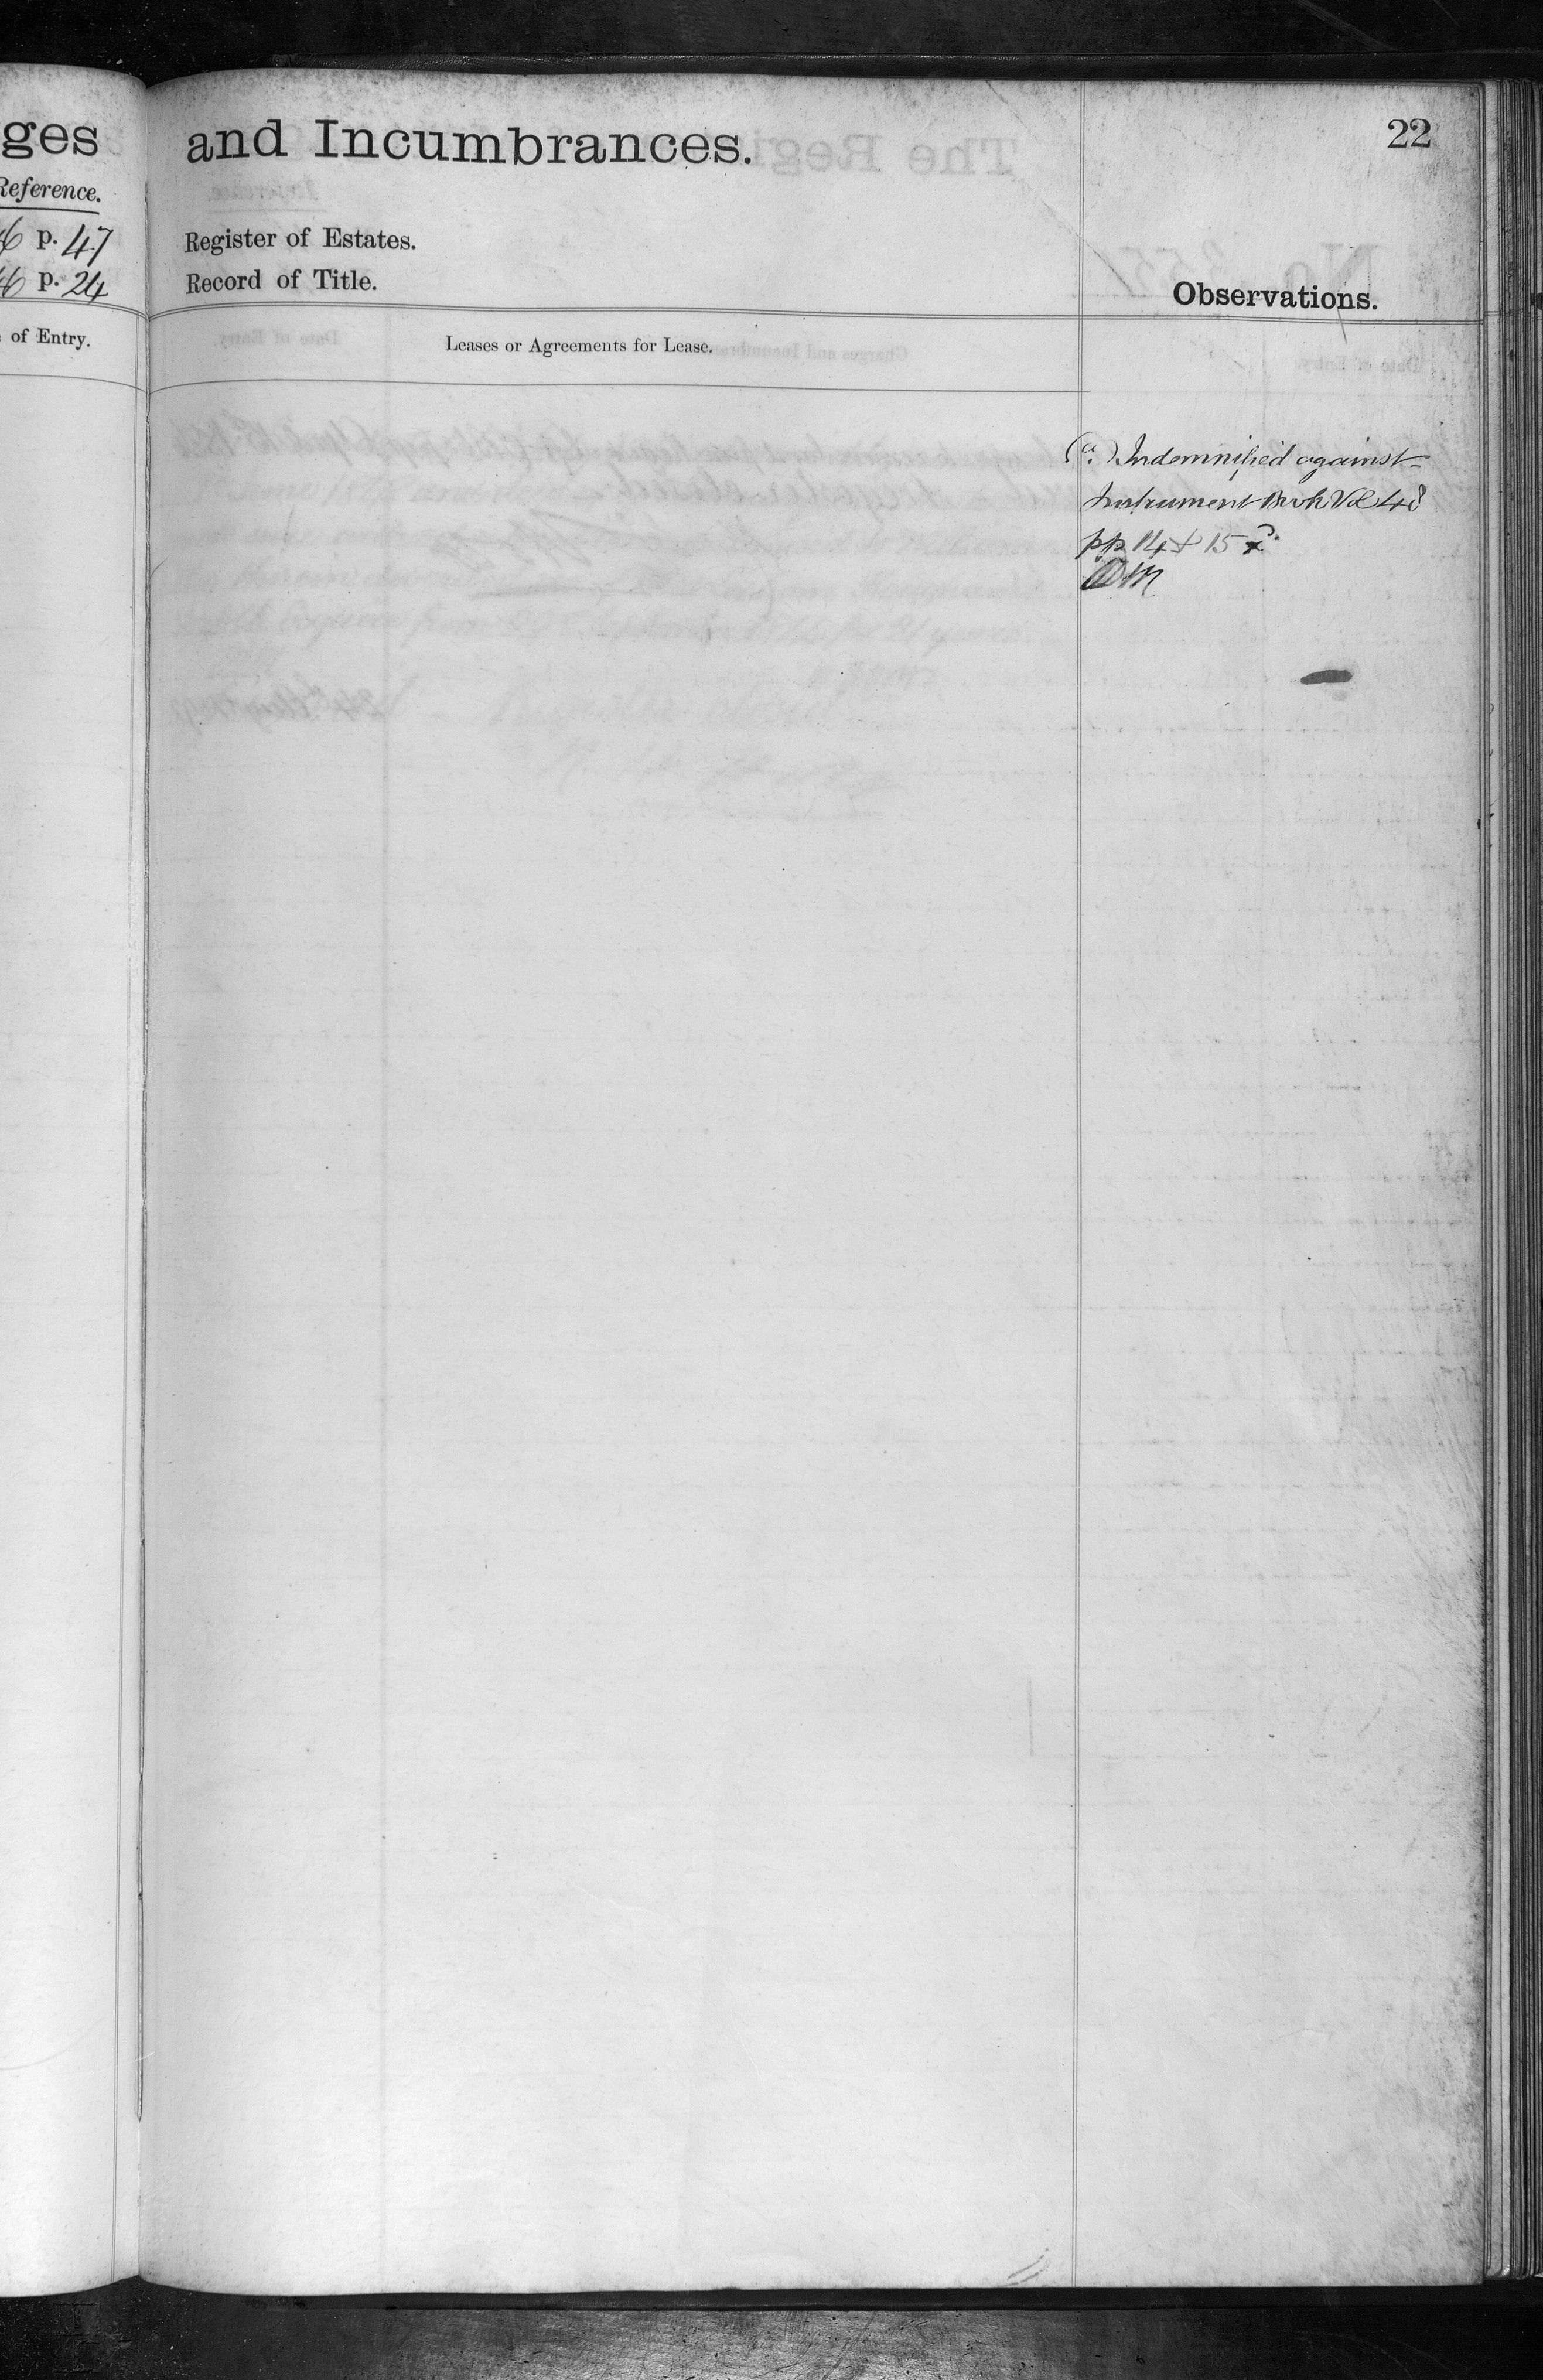 ges
Reference.
6 p. 47
6 p. 24
of Entry.
and Incumbrances.
22
Register of Estates.
Record of Title.
Observations.
Leases or Agreements for Lease.
(a.) Indemnified against
Instrument Book Vol 48
pp 14 & 15